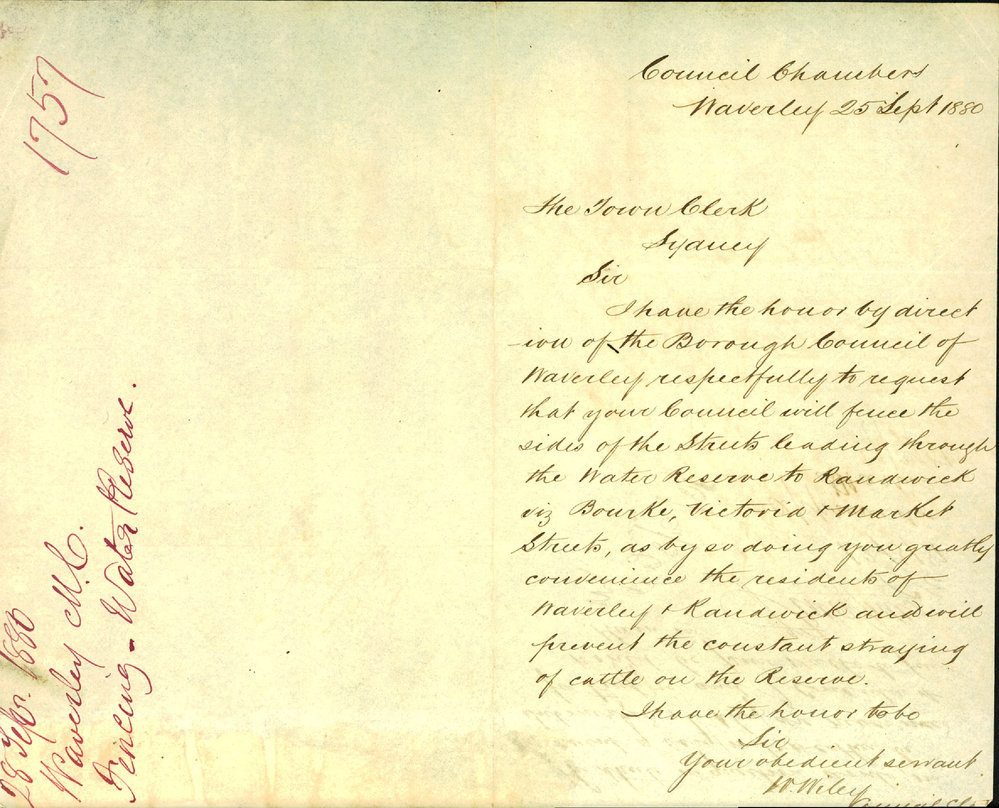 1757
28 Sept. 1880
Waverley M.C.
Fencing - Water Reserve.
Council Chambers
Waverley 25 Sept 1880
The Town Clerk
Sydney
Sir
I have the honor by direct
-ion of the Borough Council of
Waverley respectfully to request
that your Council will fence the
sides of the Streets leading through
the Water Reserve to Randwick
viz Bourke, Victoria & Market
Streets, as by so doing you greatly
convenience the residents of
Waverley & Randwick and will
prevent the constant straying
of cattle on the Reserve.
I have the honor to be
Sir
Your obedient servant
W. Wiley
Council Cl